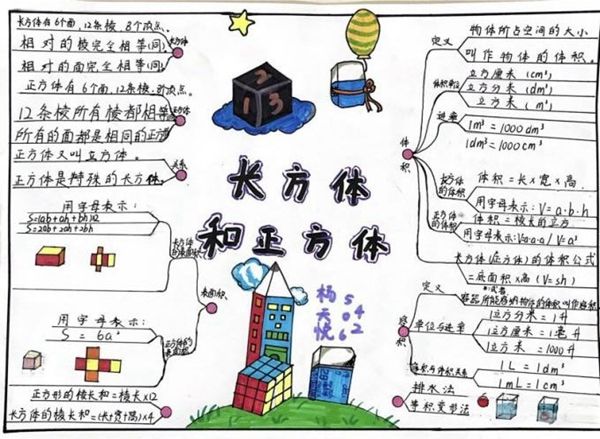 长方体有6个面,12条棱,8个顶点。
相对的棱完全相等
相对的面完全相等
长方体
正方体有6个面,12条棱,8个顶点。
12条棱所有棱都相等
所有的面都是相同的正方
正方体又叫立方体。
正方体是特殊的长方体。
关系
用字母表示:
S=(ab+ah+bh)×2
S=2ab+2ah+2bh
用字母表示:
S=6a²
表面积
正方形的棱长和=棱长×12
长方体的棱长和=(长+宽+高)×4
2
1 3
长方体
和正方体
杨 5
天 0 4
悦 6 2
体积
定义
物体所占空间的大小
叫作物体的体积。
体积单位
立方厘米(cm³)
立方分米(dm³)
立方米(m³)
进率
1m³=1000dm³
1dm³=1000cm³
长方体的体积
体积=长×宽×高
用字母表示:V=a·b·h
正方体的体积
体积=棱长的立方
用字母表示:V=a·a·a/V=a³
长方体(正方体)的体积公式
=底面积×高(V=sh)
容积
定义
单位与进率
1立方分米=1升
1立方厘米=1毫升
1立方米=1000升
容积与体积关系
1L=1dm³
1mL=1cm³
排水法
等积变形法